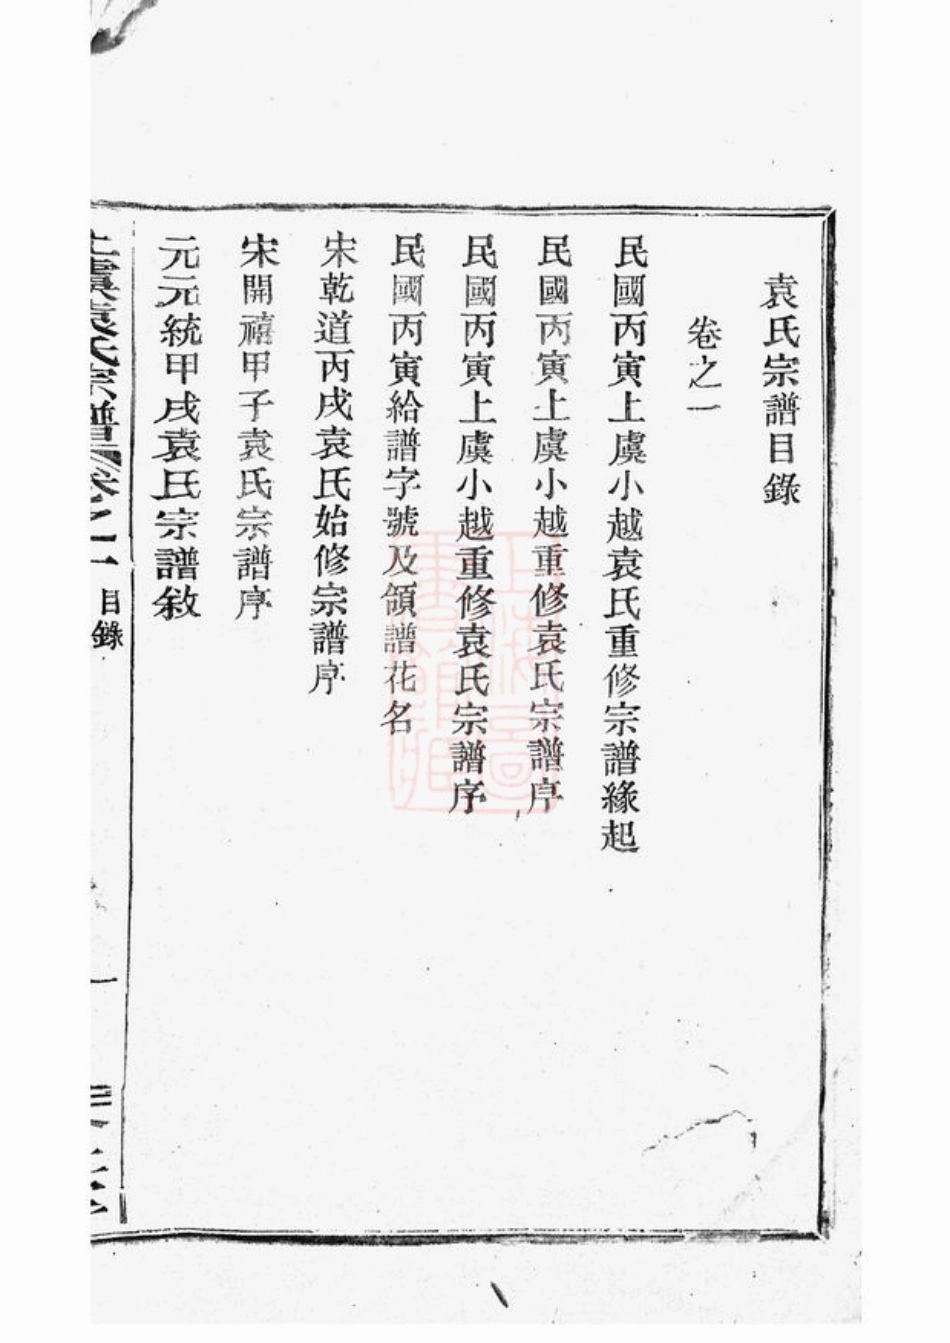 袁氏宗譜目錄
卷之一
民國丙寅上虞小越袁氏重修宗譜緣起
民國丙寅上虞小越重修袁氏宗譜序
民國丙寅上虞小越重修袁氏宗譜序
民國丙寅給譜字號及領譜花名
宋乾道丙戌袁氏始修宗譜序
宋開禧甲子袁氏宗譜序
元元統甲戌袁氏宗譜敘
上虞袁氏宗譜 卷之一 目錄
一
上海圖書館藏